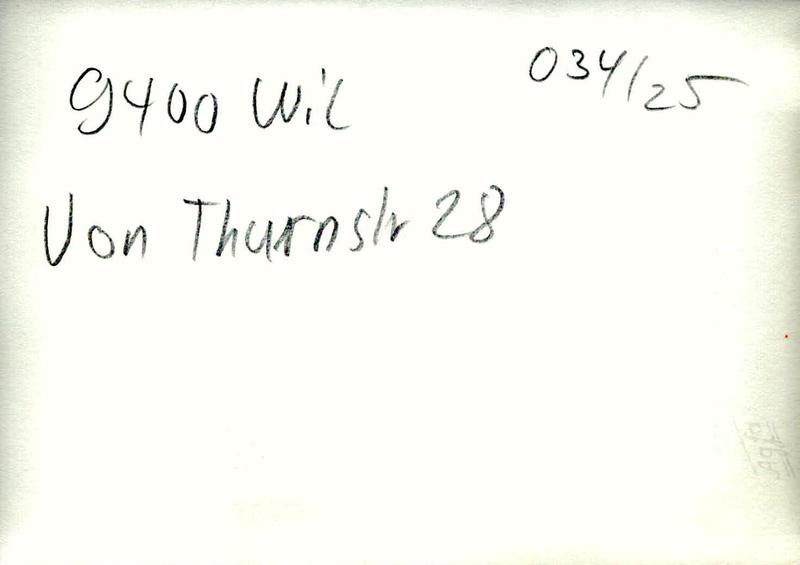 9400 Wil
034/25
Von Thurnstr 28
Agfa